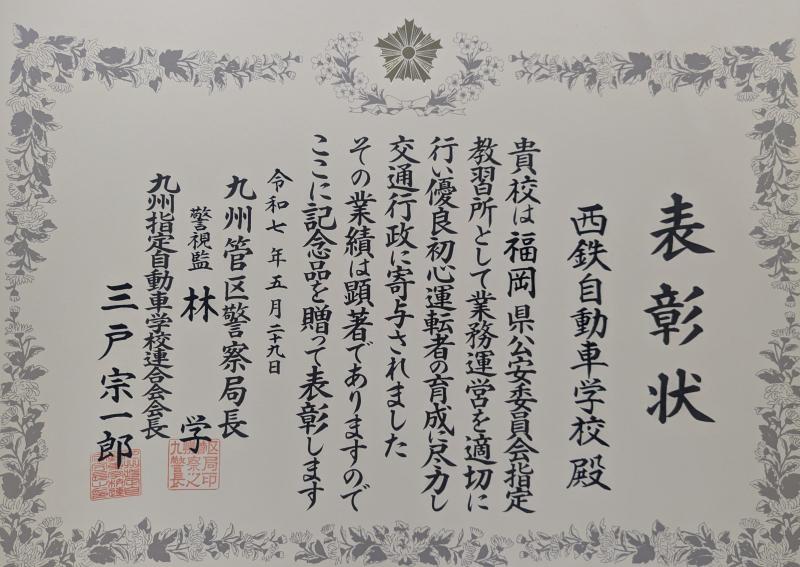 表彰状
西鉄自動車学校殿
貴校は福岡県公安委員会指定
教習所として業務運営を適切に
行い優良初心運転者の育成に尽力し
交通行政に寄与されました
その業績は顕著でありますので
ここに記念品を贈って表彰します
令和七年五月二十九日
九州管区警察局長
警視監 林 学
九州指定自動車学校連合会会長
三戸宗一郎